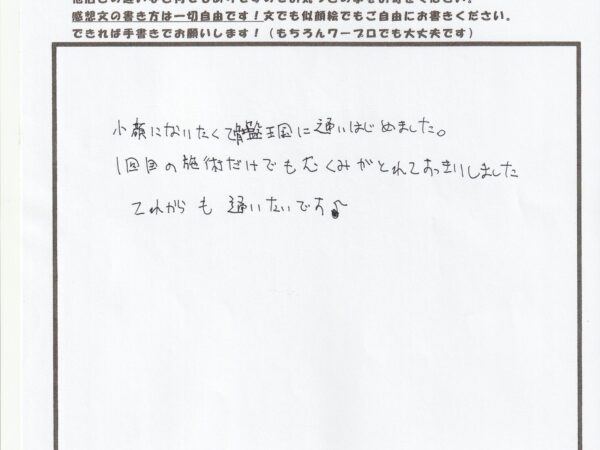 感想文の書き方は一切自由です！文でも似顔絵でもご自由にお書きください。
できれば手書きでお願いします！（もちろんワープロでも大丈夫です）
小顔になりたくて骨盤王国に通いはじめました。
1回目の施術だけでもむくみがとれてすっきりしました
これからも通いたいです♪